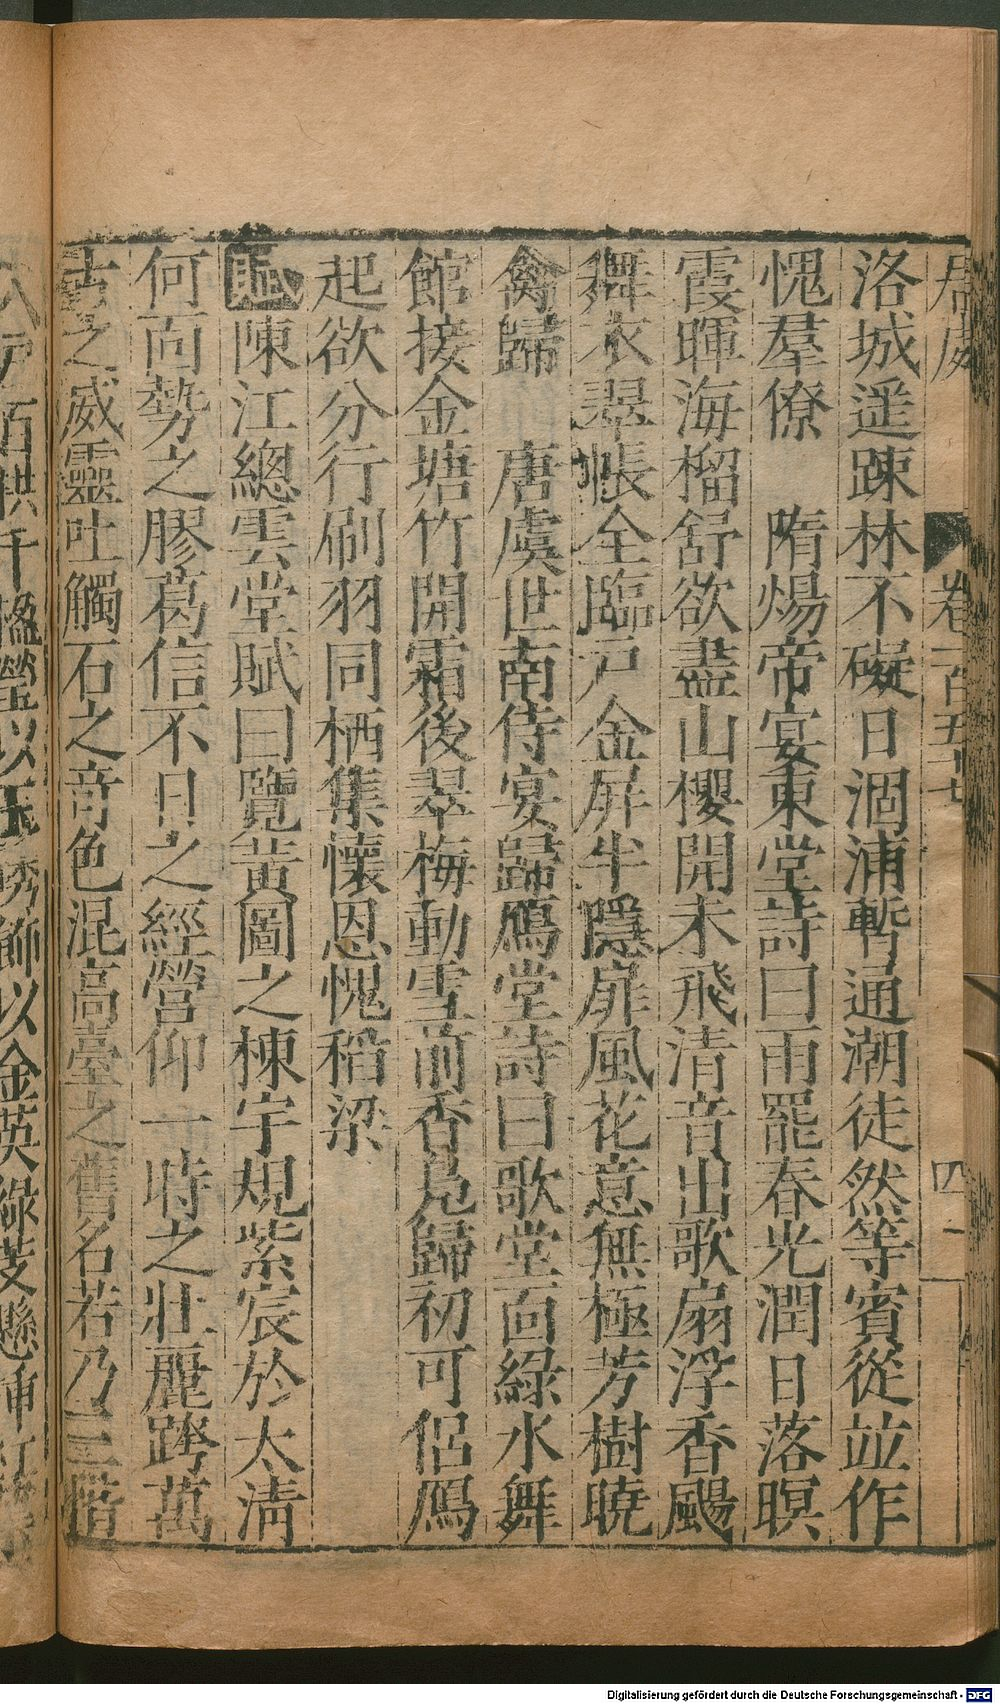 居處 卷一百五十七 四
洛城遥踈林不礙日涸浦暫通潮徒然等賓從並作
愧羣僚 隋煬帝宴東堂詩曰雨罷春光潤日落暝
霞暉海榴舒欲盡山櫻開未飛清音出歌扇浮香颺
舞衣翠帳全臨戸金屏半隱扉風花意無極芳樹曉
禽歸 唐虞世南侍宴歸鴈堂詩曰歌堂面綠水舞
館接金塘竹開霜後翠梅動雪前香鳧歸初可侶鴈
起欲分行刷羽同栖集懷恩愧稻梁
賦陳江總雲堂賦曰覽黃圖之棟宇規紫宸於太清
何面勢之膠葛信不日之經營仰一時之壯麗跨萬
古之威靈吐觸石之奇色混高臺之舊名若乃三階
八戸百栱千楹瑩以玉琇飾以金英綠芰懸揷
Digitalisierung gefördert durch die Deutsche Forschungsgemeinschaft - DFG